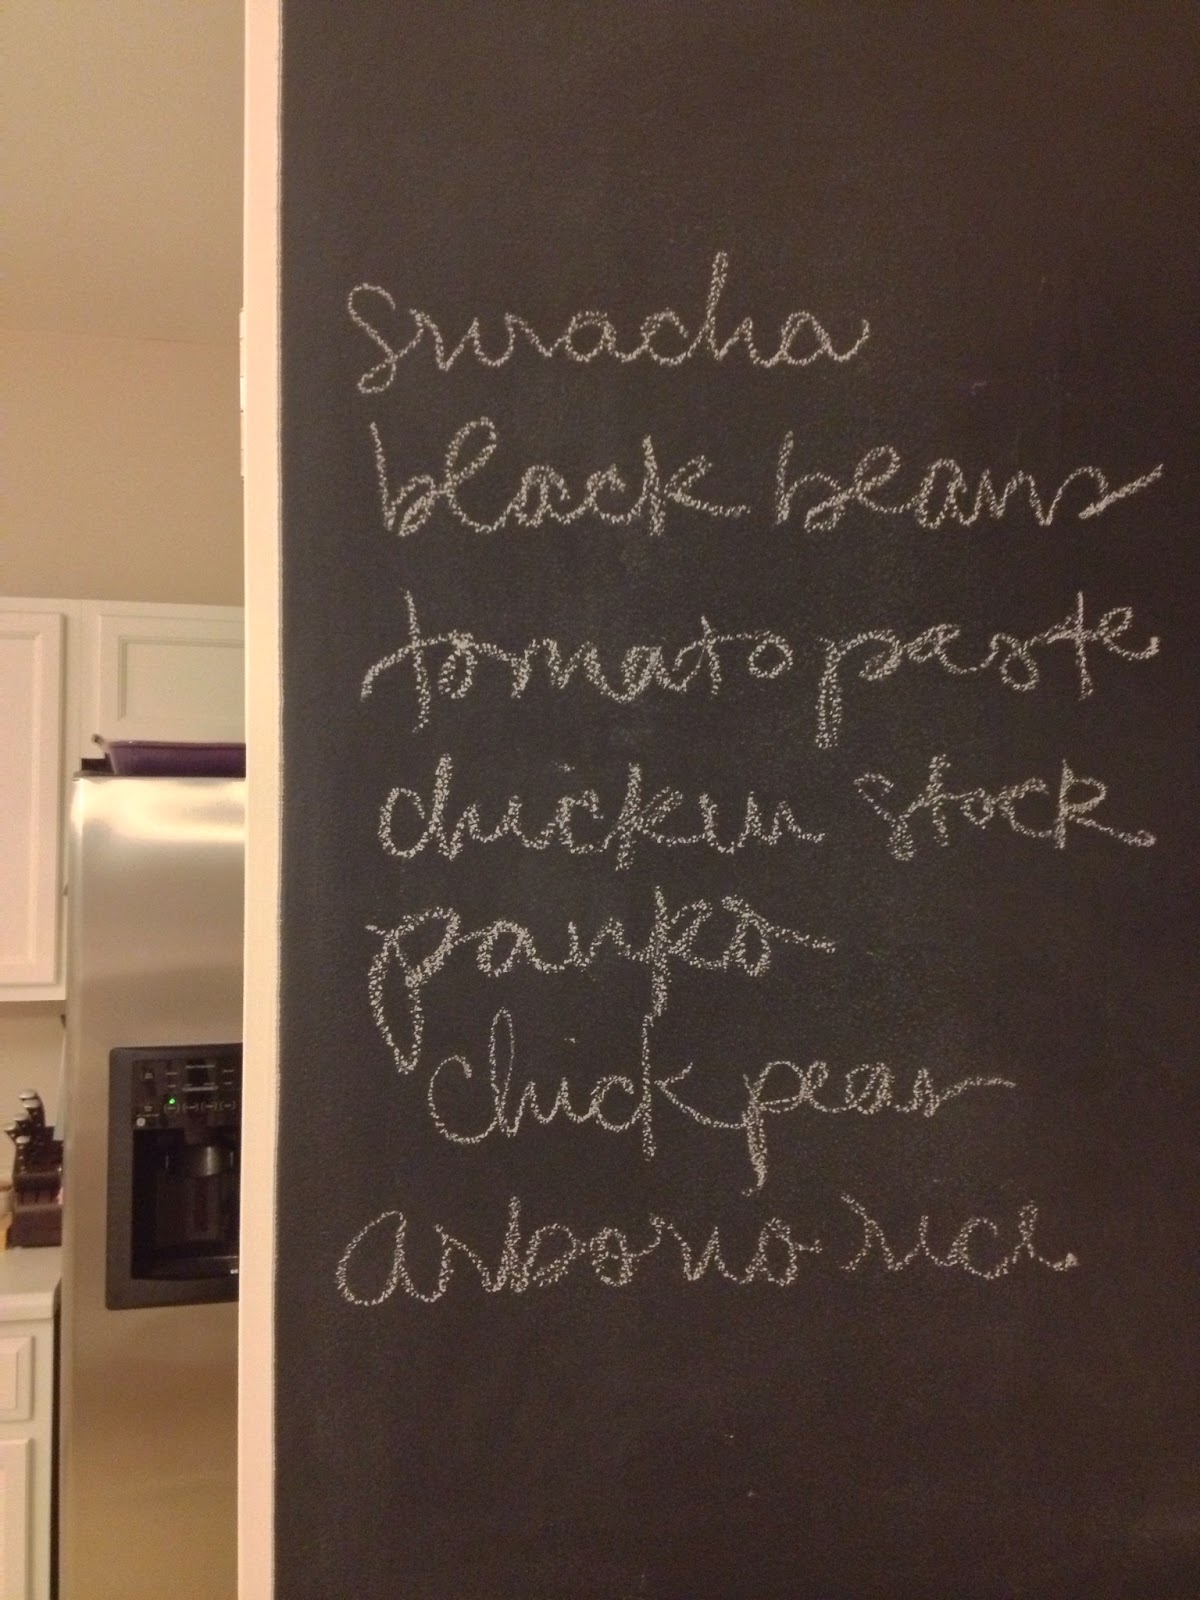 sriracha
black beans
tomato paste
chicken stock
panko
chick peas
arborio rice